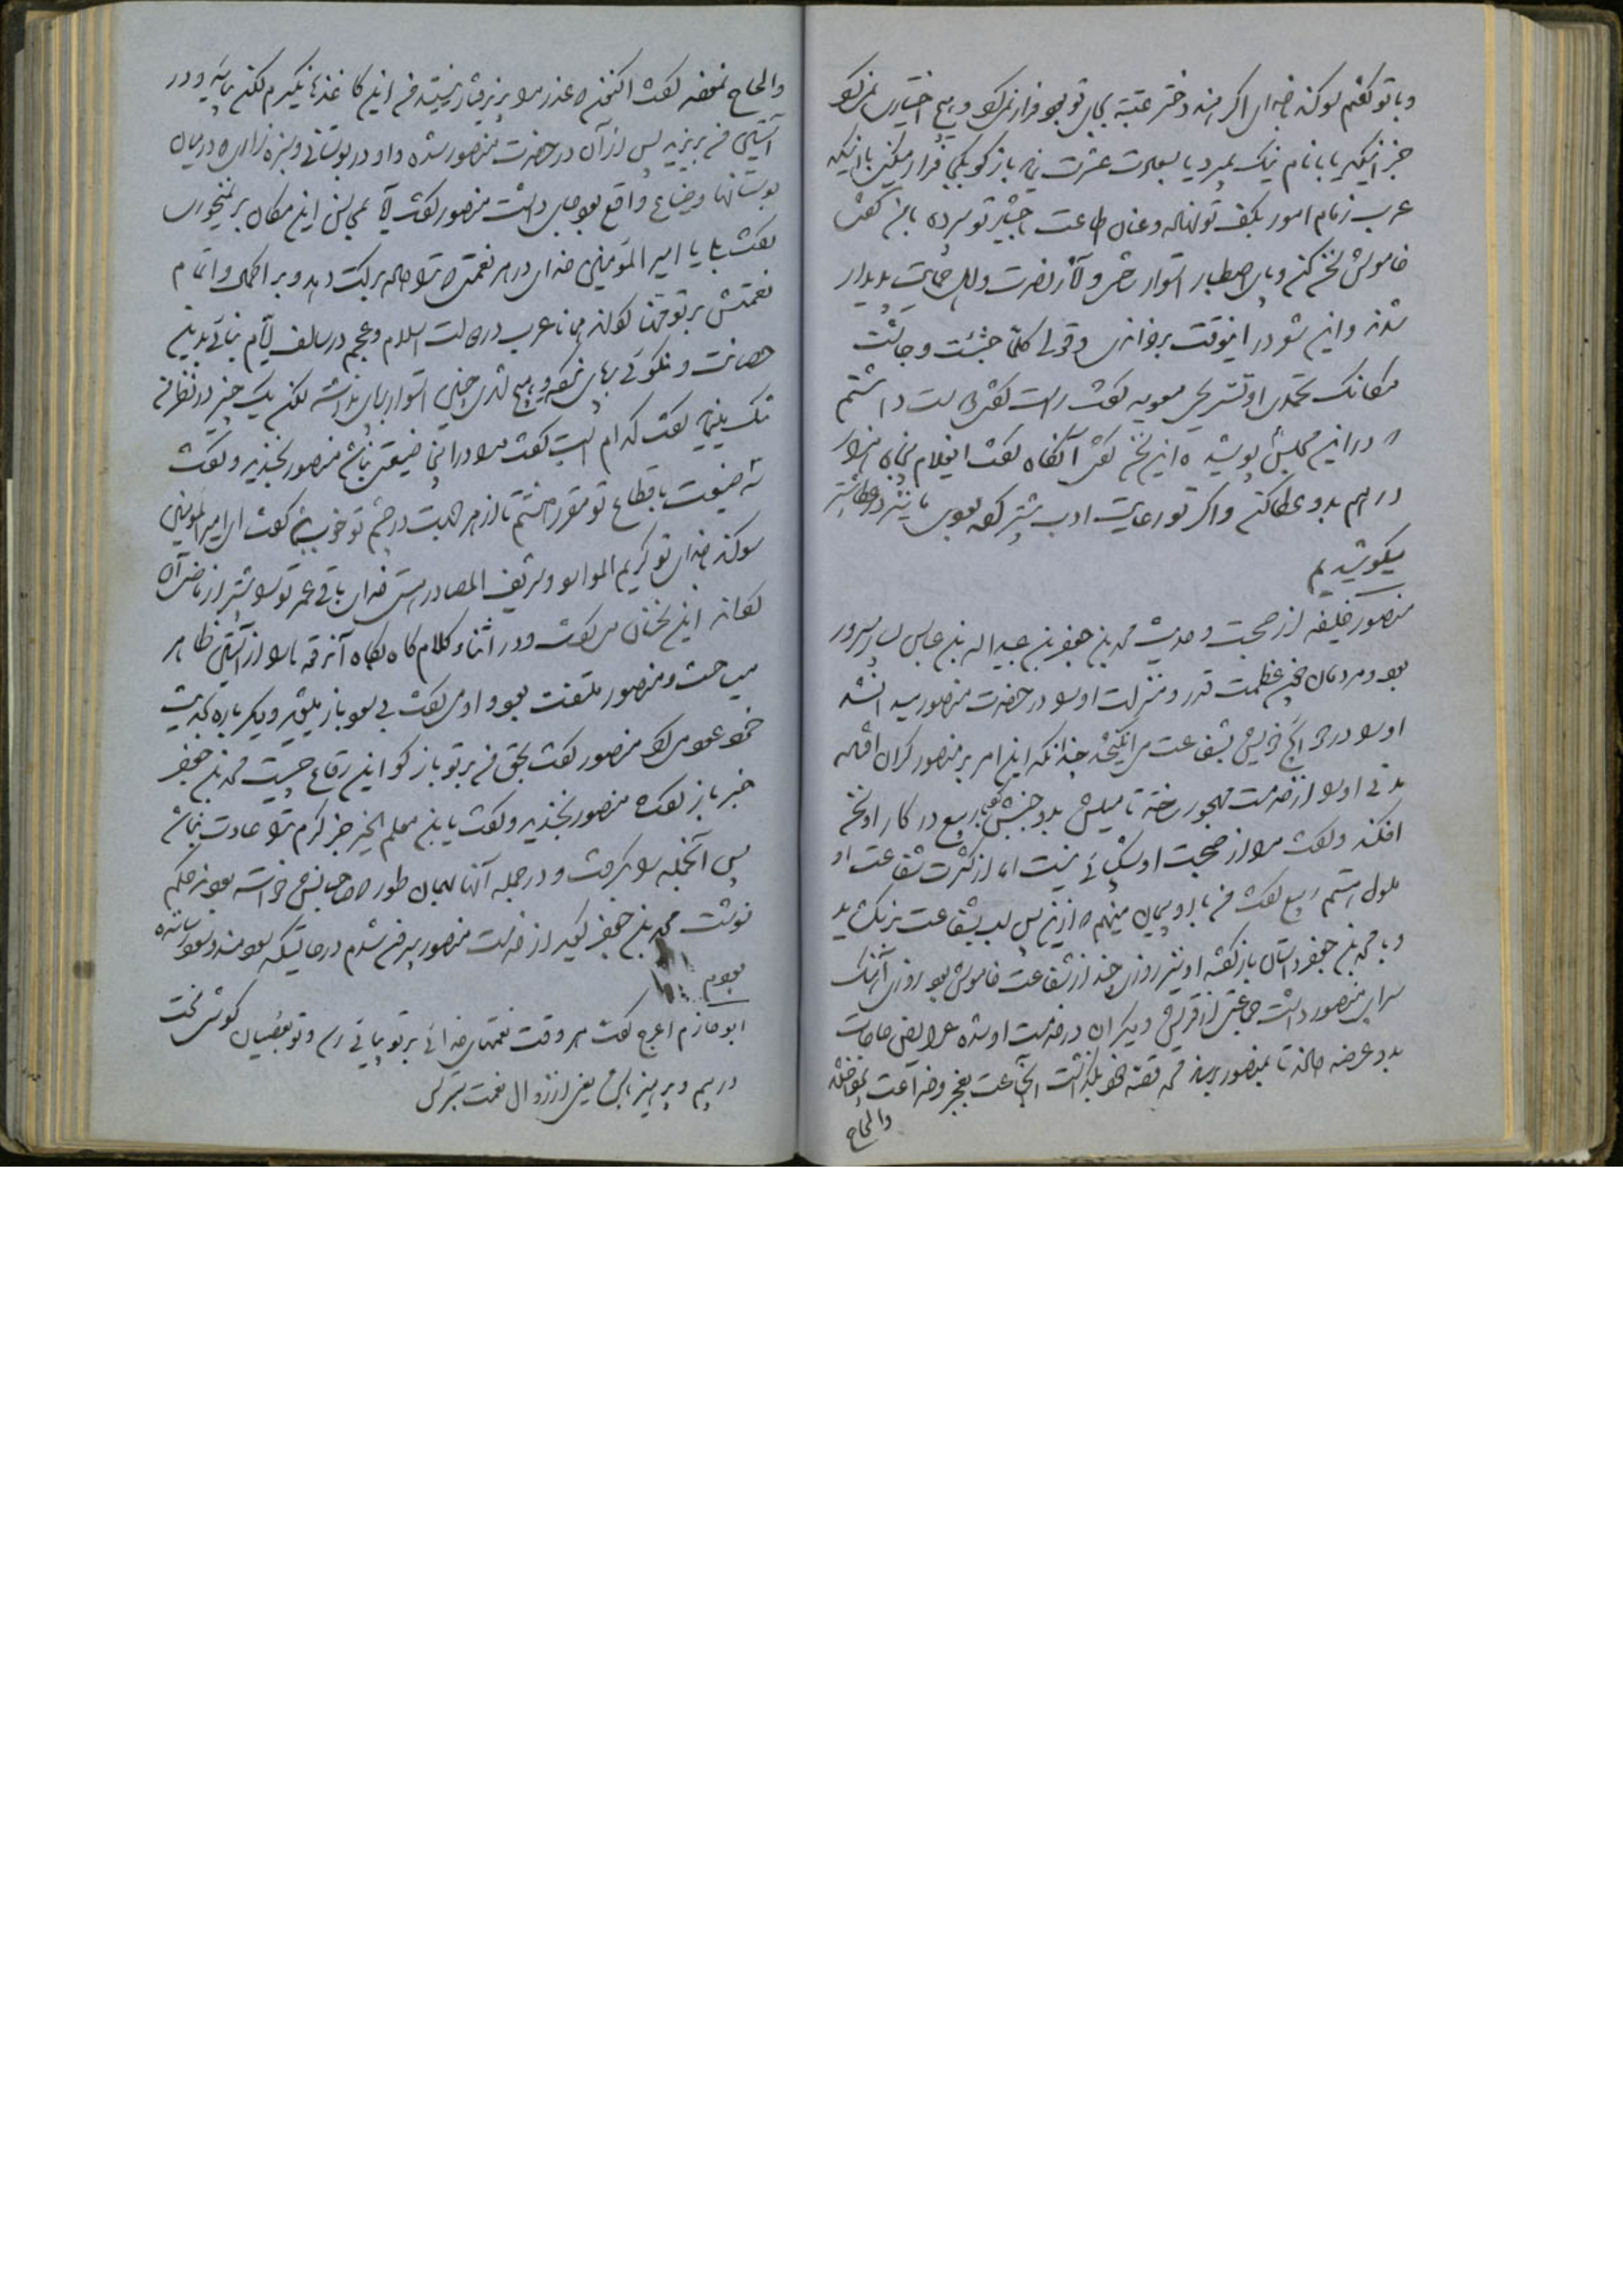 و با تو گفتم سوگند خدای اگر هند دختر عتبه بجای تو بود فرار نمیکرد و هیچ اختیاری نمیکرد
جز اینکه یا با نام نیک بمیرد یا بسعادت عشرت نماید باز گو بکجا فرار میکنی با اینکه
عرب زمام امور بکف تو نهاده و عنان طاعت بچنبر تو سپرده با من گفت
خاموش سخن کن و پای اصطبار استوار دار و آثار نصرت و حمایت پدیدار
شدند و این شعر در اینوقت برخواندی و قولی کلما جشئت و جاشت
مکانک تحمدی او تستریحی معویه گفت راست گفتی دوست داشتم
در این مجلس پوشیده این سخن آنگاه گفت ای غلام پنجاه هزار
درهم بدو عطا کن و اگر تو رعایت ادب بیشتر کرده بودی ما نیز در عطا بیشتر
میکوشیدیم
منصور خلیفه از صحبت و حدیث محمد بن جعفر بن عبیداله بن عباس بسیار مسرور
بود و مردمان چون عظمت قدر و منزلت او را در حضرت منصور میدانستند
او را در حوائج خویش بشفاعت می انگیختند چندانکه این امر بر منصور گران افتاد
مدتی او را از خدمت مهجور ساخت تا میلش بدو جنبش گرفت با ربیع در کار او سخن
افکند و گفت مرا از صحبت او شکیبائی نیست اما از کثرت شفاعت او
ملول هستم ربیع گفت من با او پیمان مینهم که ازین پس لب بشفاعت برنگشاید
و با محمد بن جعفر داستان بازگفت او نیز روزی چند از شفاعت خاموش بود روزی آهنگ
سرای منصور داشت جماعتی از قریش و دیگران در خدمت او شده عرایض حاجات
بدو عرضه دادند تا بمنصور رساند محمد قصه خود بگذاشت آنجماعت بعجز و ضراعت بیفزودند
والحاح
والحاح نمودند گفت اکنون که عذر مرا پذیرفتار نیستید من این کاغذها نگیرم لکن بیائید و در
آستین من بریزید پس از آن در حضرت منصور شده و او در بوستانی و سبزه زاری که در میان
بوستانها و ضیاع واقع بود جای داشت منصور گفت آیا بحسن این مکان برنمیخوری
گفت بلی یا امیر المؤمنین خدای در هر نعمتی که ترا داده برکت دهد و بر اکمال و اتمام
نعمتش بر تو مهنا گرداند همانا عرب در دولت اسلام و عجم در سالف ایام بنائی بدین
حصانت و نیکوئی بپای نکرده و هیچ شهری چنین استوار بنا نداشته لکن یک چیز در نظر من
تنک مینماید گفت کدام است گفت مرا در اینجا ضیعتی نباشد منصور بخندید و گفت
سه ضیعت باقطاع تو مقرر داشتم تا از هر جهت در چشم تو خوب نماید گفت ای امیر المؤمنین
سوگند خدای تو کریم الموارد و شریف المصادر هستی خدای باقی عمر تو را بیشتر از ماضی آن
گرداند این سخنان می گفت و در اثنای کلام گاه بگاه آن رقعه ها از آستین ظاهر
میساخت و منصور ملتفت بود و او می گفت بی باز پلیق دیگر باره بحدیث
خود عود می کرد منصور گفت بحق من بر تو باز گو این رقاع چیست محمد بن جعفر
خبر باز گفت منصور بخندید و گفت یا بن معلم الخیر جز کرم ترا عادت نباشد
پس آنجمله را بگرفت و در جمله آنها بهمان طور که صاحبانش خواسته بودند حکم
نوشت محمد بن جعفر گوید از خدمت منصور بیرون شدم در حالیکه سودمند و سود رساننده
بودم
ابو حازم اعرج گفت هر وقت نعمتهای خدائی بر تو پیاپی رسد و تو بعصیان کوشی سخت
درهم و پرهیز باش یعنی از زوال نعمت بترس